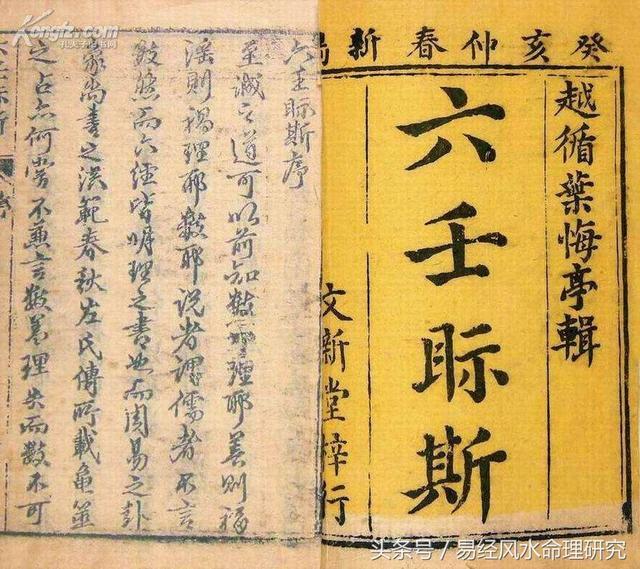 癸亥仲春新
越循葉悔亭輯
六壬眎斯
文新堂梓行
六壬眎斯序
至誠之道可以前知數耶理耶善則福
淫則禍理耶數耶說者謂儒者不言
數然而六經皆明理之書也而周易之卦
象尚書之洪範春秋左氏傳所載龜筮
之占亦何嘗不兼言數蓋理失而數不可
六壬眎斯 序
Kongfz.com
孔夫子旧书网
头条号 / 易经风水命理研究